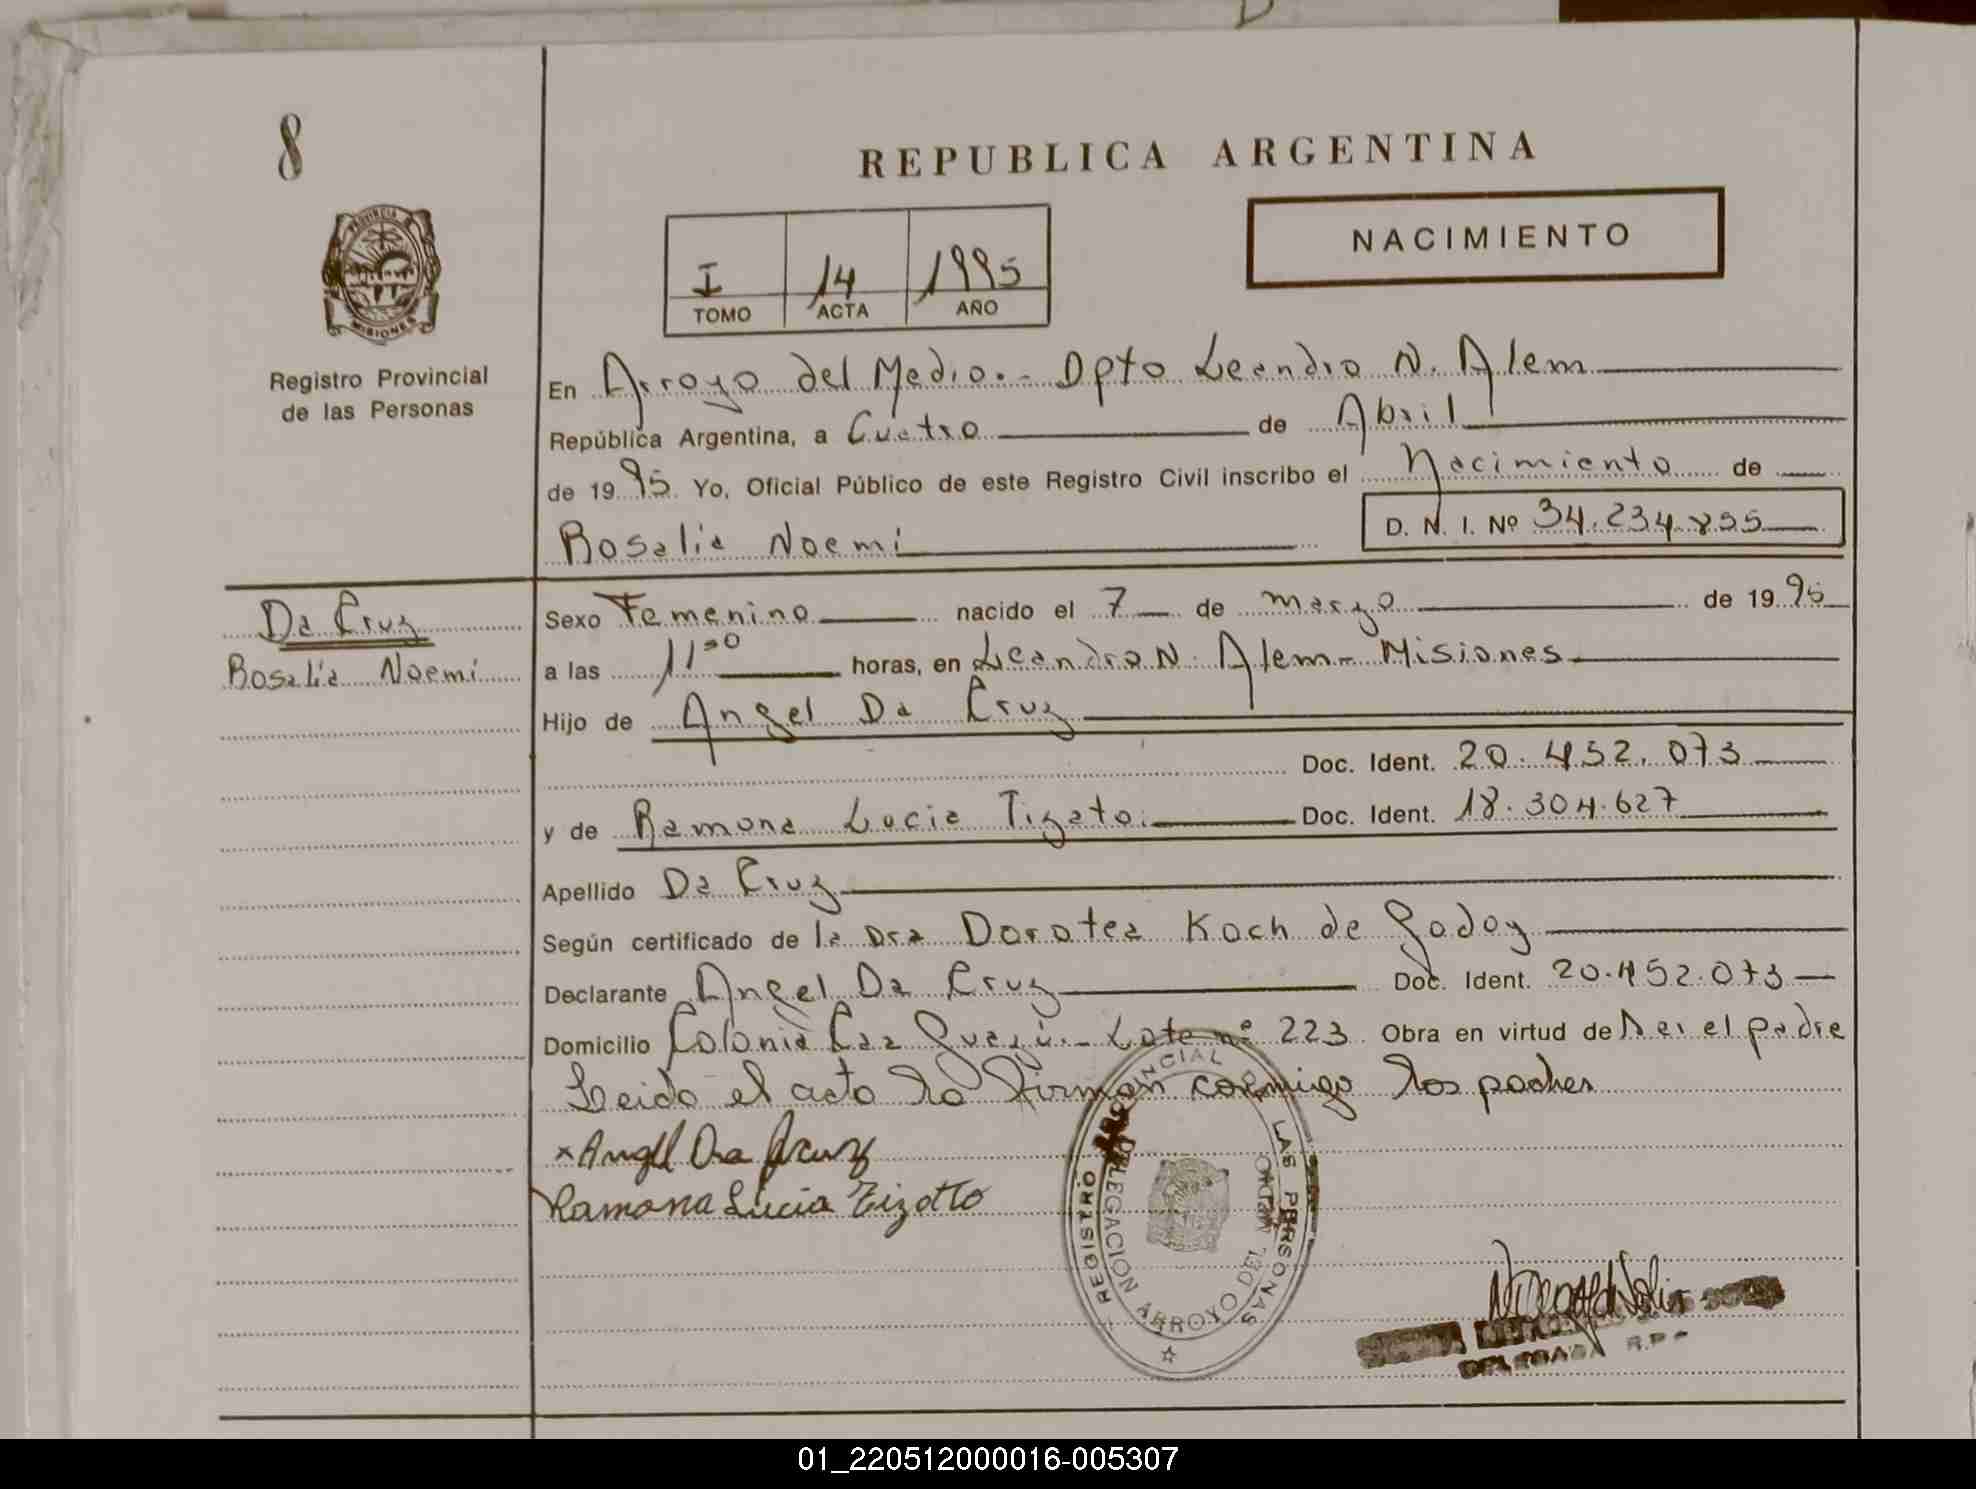 8
REPUBLICA ARGENTINA
NACIMIENTO
PROVINCIA DE
MISIONES
Registro Provincial
de las Personas
I 14 1995
TOMO ACTA AÑO
En Arroyo del Medio.- Dpto Leandro N. Alem
República Argentina, a Cuatro de Abril
de 1995 Yo, Oficial Público de este Registro Civil inscribo el Nacimiento de
Rosalia Noemi D. N. I. Nº 34.234.855
Da Cruz
Rosalia Noemi
Sexo Femenino nacido el 7 de marzo de 1995
a las 11:00 horas, en Leandro N. Alem - Misiones
Hijo de Angel Da Cruz
Doc. Ident. 20.452.073
y de Ramona Lucia Tizato. Doc. Ident. 18.304.627
Apellido Da Cruz
Según certificado de la Dra Dorotea Koch de Godoy
Declarante Angel Da Cruz Doc. Ident. 20.452.073
Domicilio Colonia Caa Guazú.- Lote nº 223 Obra en virtud de Ser el padre
Leido el acto lo firman conmigo los padres
x Angel Da Cruz
Ramona Lucia Tizatto
REGISTRO PROVINCIAL DE LAS PERSONAS
DELEGACION ARROYO DEL MEDIO
DELEGADA R.P.
01_220512000016-005307